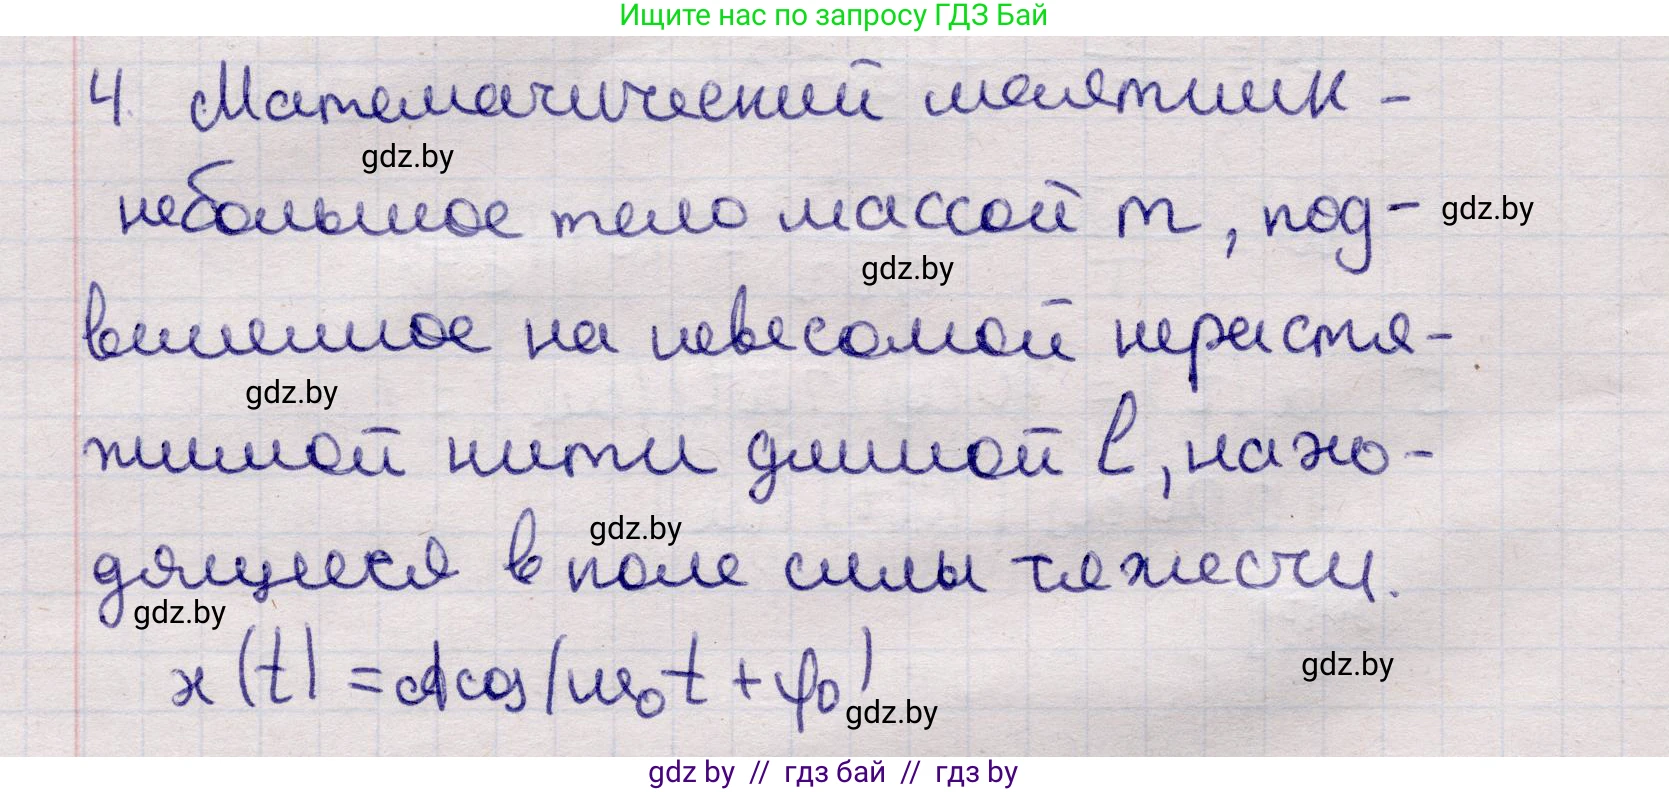 Ищите нас по запросу ГДЗ Бай
4. Математический маятник -
gdz.by
небольшое тело массой m, под-
gdz.by
gdz.by
вешенное на невесомой нерастя-
gdz.by
жимой нити длиной l, нахо-
gdz.by
дящееся в поле силы тяжести.
gdz.by
x(t) = Acos(ω₀t + φ₀)
gdz.by
gdz.by
gdz by // гдз бай // гдз by